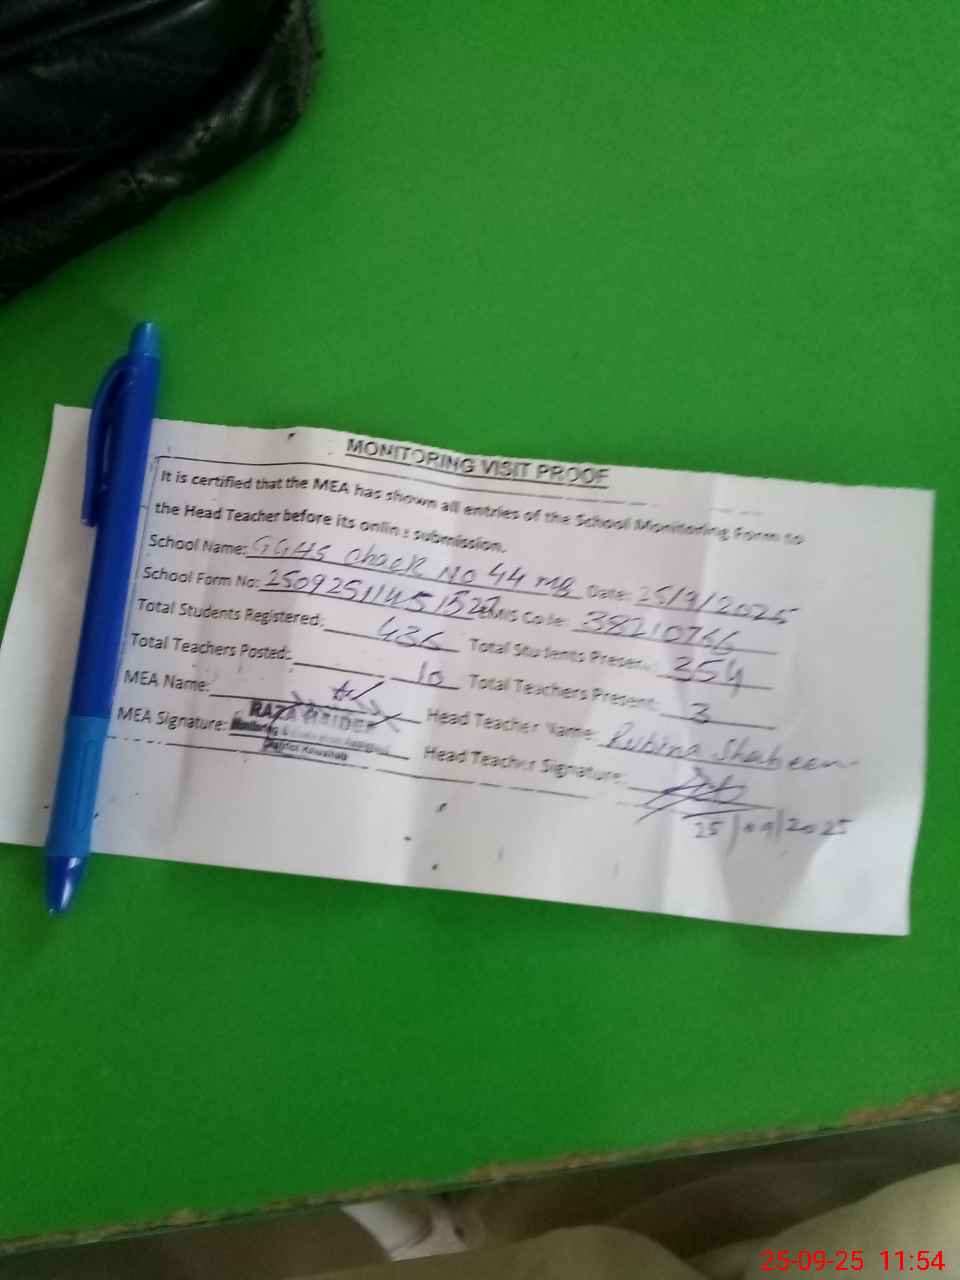 MONITORING VISIT PROOF
It is certified that the MEA has shown all entries of the School Monitoring Form to
the Head Teacher before its online submission.
School Name: GGHS Chack No 44 MB Date: 25/9/2025
School Form No: EMIS Code: 38210766
Total Students Registered: 436 Total Students Present: 354
Total Teachers Posted: 10 Total Teachers Present: 3
MEA Name: Head Teacher Name: Rubina Shaheen
MEA Signature: RAZA HAIDER Head Teacher Signature:
Monitoring &
District Khushab
25/09/2025
25-09-25 11:54